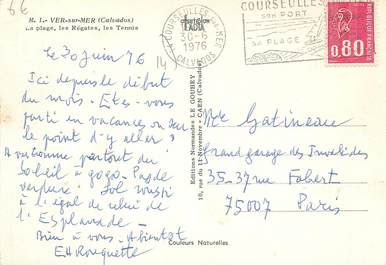 M. I.- VER-sur-MER (Calvados)
La plage, les Régates, les Tennis
Le 30 juin 76
Ici depuis le début
du mois - Etes-vous
parti en vacances ou sur
le point d'y aller ?
partout du
Soleil à gogo. Pas de
verdure. Sol roussi
à l'égal de celui de
l'Esplanade -
Bien à vous - A bientôt
Editions Normandes LE GOUBEY
10, rue du 11-Novembre - CAEN (Calvados)
COURSEULLES-sur-MER
1976
CALVADOS
COURSEULLES
SON PORT
SA PLAGE
0,80
Gatineau
Grand garage des Invalides
35-37 rue Fabert
75007
Paris
Couleurs Naturelles